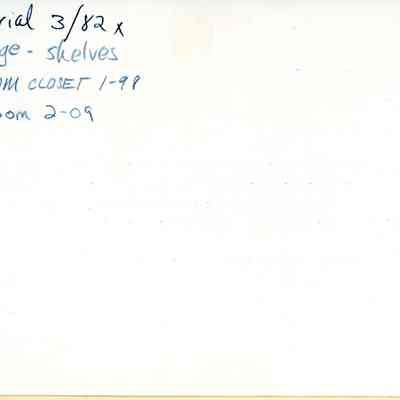 rial 3/82 x
ge - shelves
OM CLOSET 1-98
oom 2-09